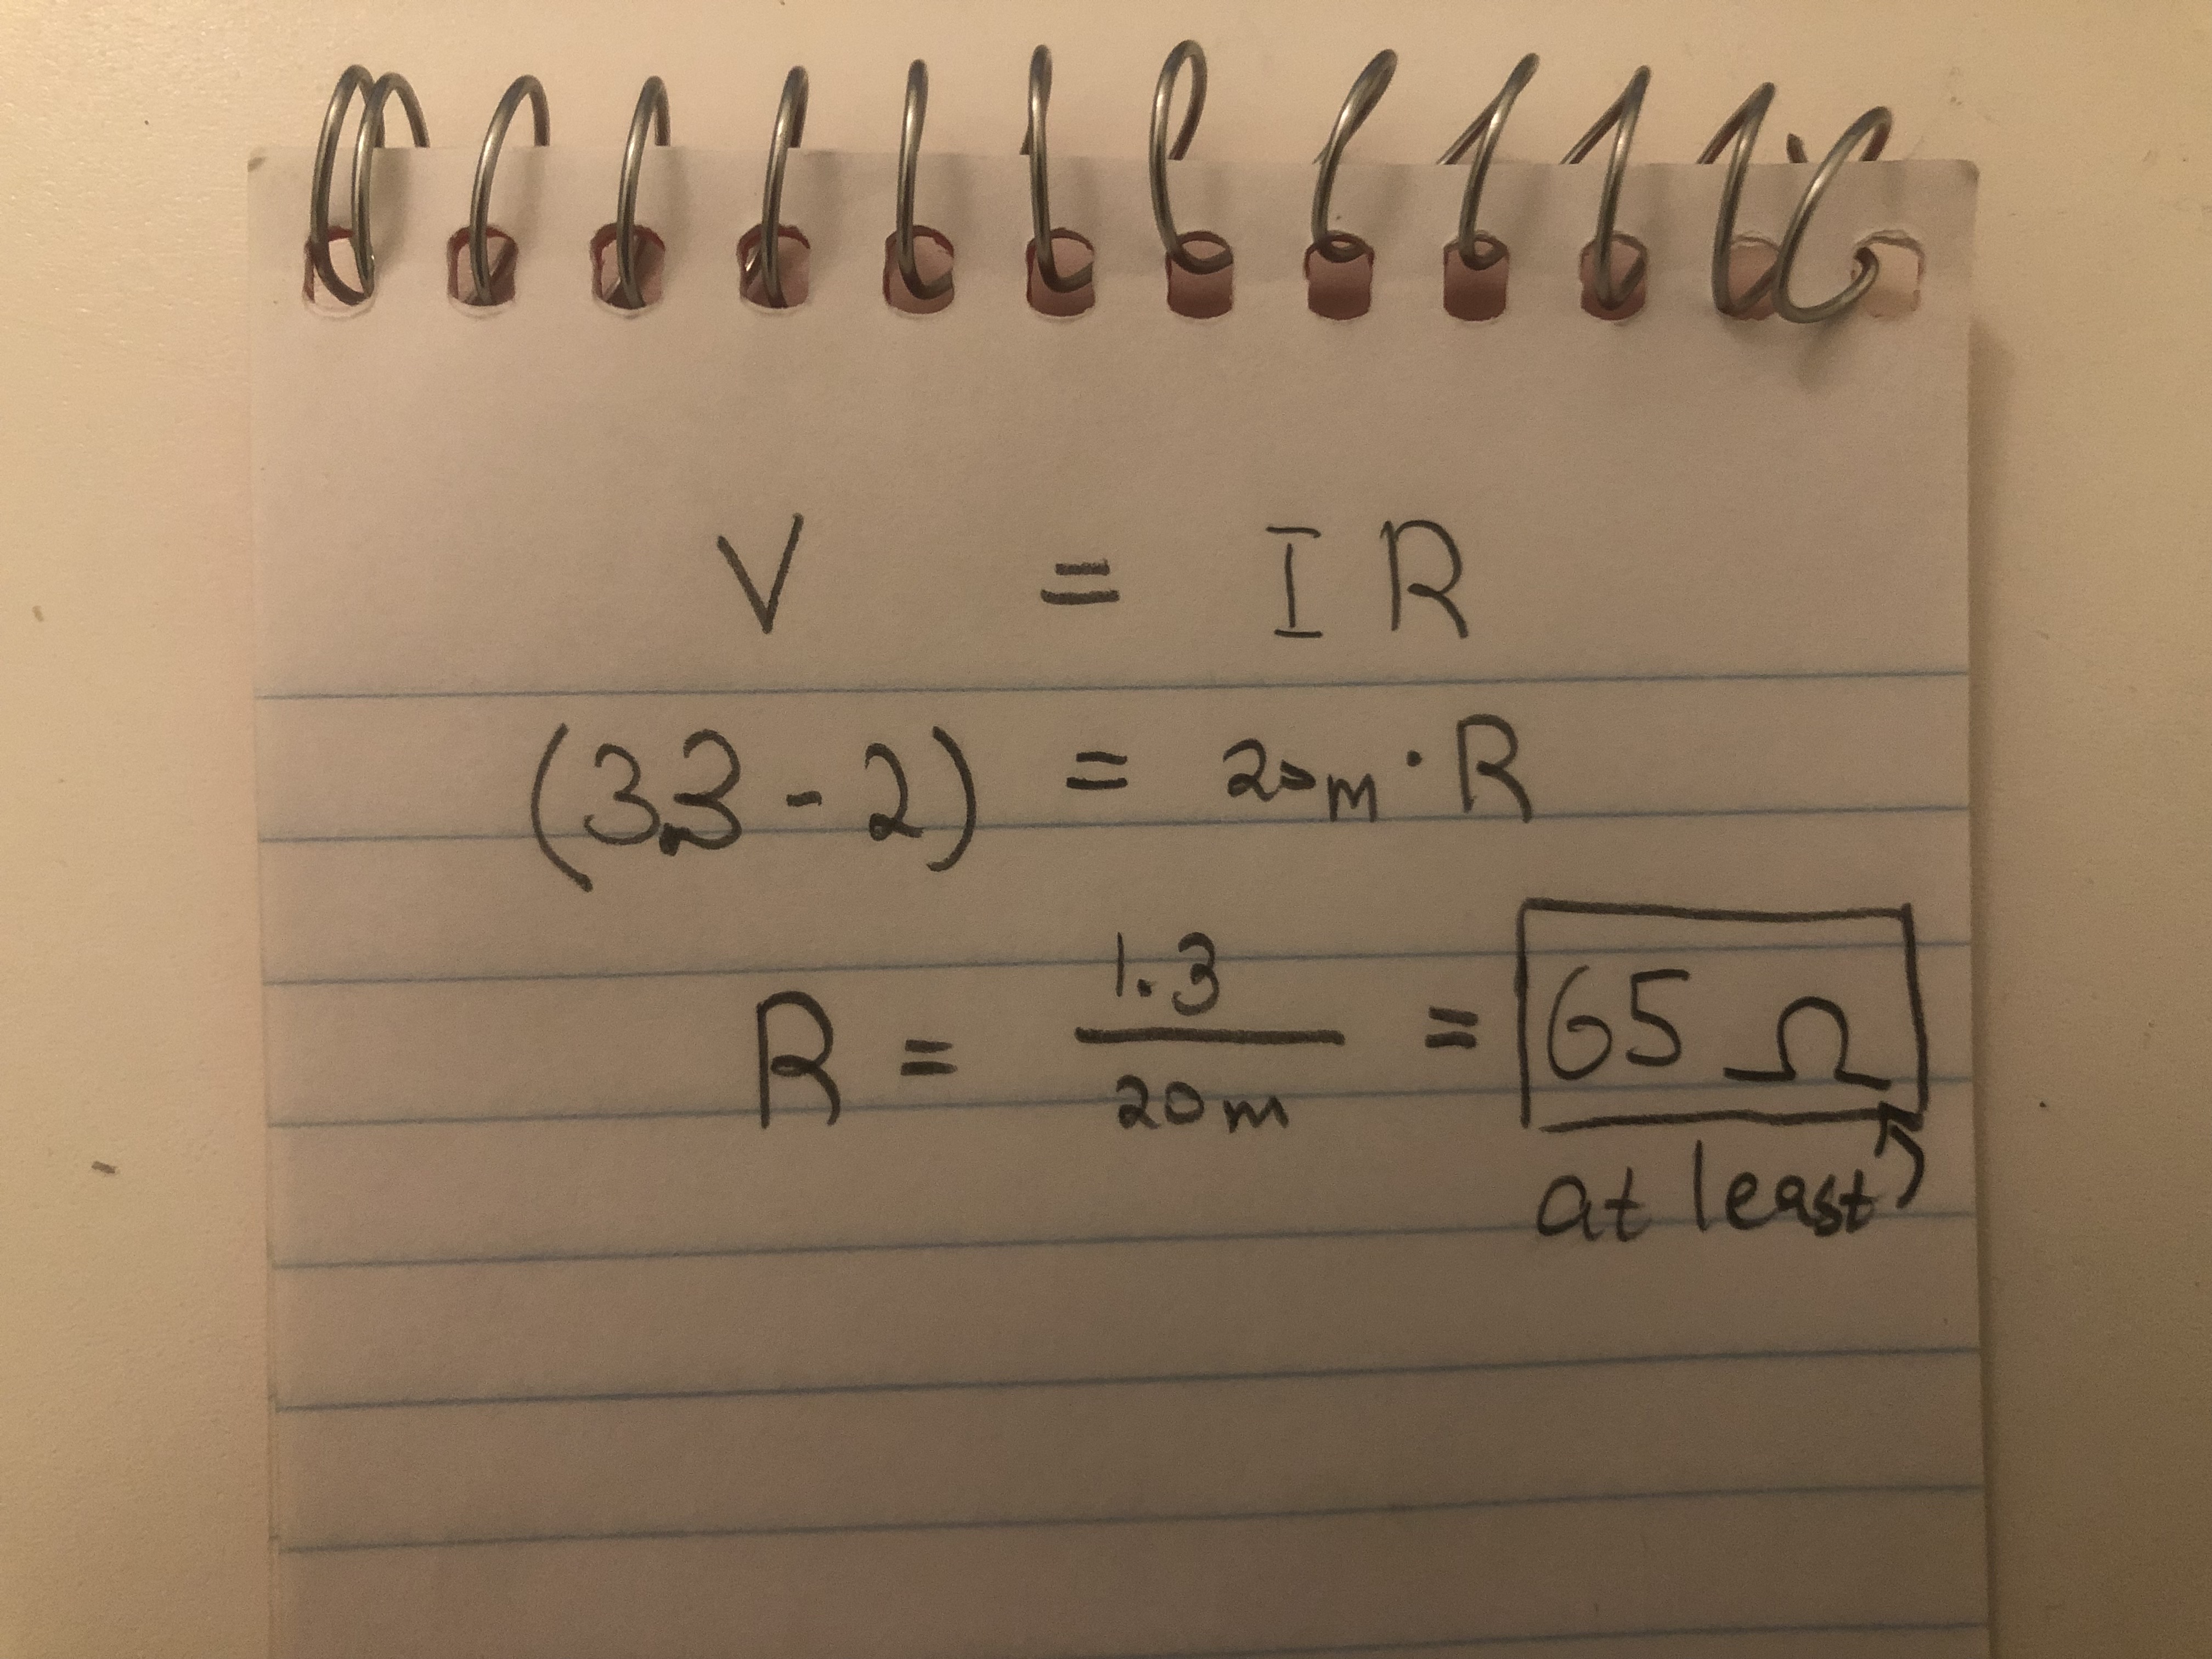 V = IR
(3.3 - 2) = 20m · R
R = 1.3 / 20m = 65 Ω
at least